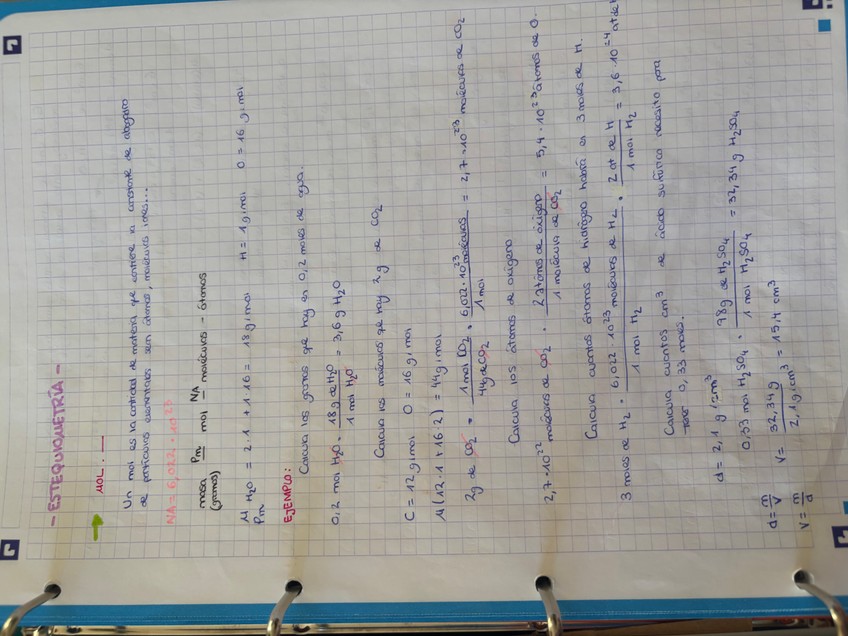 - ESTEQUIOMETRÍA -
→ MOL: —
Un mol es la cantidad de materia que contiene la constante de abogadro
de partículas elementales sean átomos, moléculas iones...
NA = 6,022 · 10^23
masa (gramos) Pm mol NA moléculas - átomos
M Pm H2O = 2 · 1 + 1 · 16 = 18 g/mol H = 1 g/mol O = 16 g/mol
EJEMPLO:
Calcula los gramos que hay en 0,2 moles de agua.
0,2 mol H2O · 18 g de H2O / 1 mol H2O = 3,6 g H2O
Calcula las moléculas que hay 2g de CO2
C = 12 g/mol O = 16 g/mol
M (12 · 1 + 16 · 2) = 44 g/mol
2g de CO2 · 1 mol CO2 / 44g de CO2 · 6,022 · 10^23 moléculas / 1 mol = 2,7 · 10^23 moléculas de CO2
Calcula los átomos de oxígeno
2,7 · 10^22 moléculas de CO2 · 2 átomos de oxígeno / 1 molécula de CO2 = 5,4 · 10^23 átomos de O.
Calcula cuantos átomos de hidrógeno habrá en 3 moles de H.
3 moles de H2 · 6,022 · 10^23 moléculas de H2 / 1 mol H2 · 2 at de H / 1 mol H2 = 3,6 · 10^24 at de H
Calcula cuantos cm^3 de ácido sulfúrico necesito para
0,33 moles.
d = 2,1 g/cm^3
0,33 mol H2SO4 · 98g de H2SO4 / 1 mol H2SO4 = 32,34 g H2SO4
d = m/V V = 32,34 g / 2,1 g/cm^3 = 15,4 cm^3
V = m/d